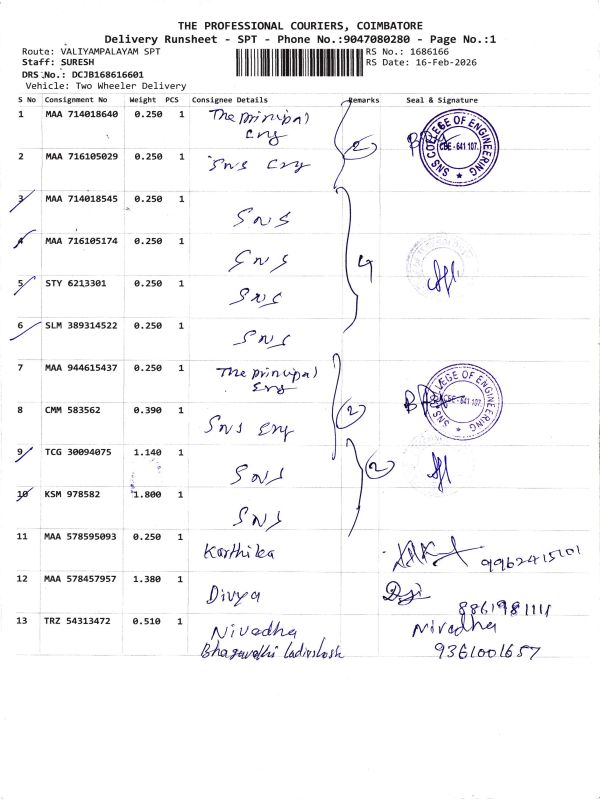 THE PROFESSIONAL COURIERS, COIMBATORE
Delivery Runsheet - SPT - Phone No.:9047080280 - Page No.:1
Route: VALIYAMPALAYAM SPT RS No.: 1686166
Staff: SURESH RS Date: 16-Feb-2026
DRS No.: DCJB168616601
Vehicle: Two Wheeler Delivery
S No Consignment No Weight PCS Consignee Details Remarks Seal & Signature
1 MAA 714018640 0.250 1 The principal
Eng 2 SNS COLLEGE OF ENGINEERING CBE - 641 107.
2 MAA 716105029 0.250 1 SNS Eng
3 MAA 714018545 0.250 1 SNS
4 MAA 716105174 0.250 1 SNS 4
5 STY 6213301 0.250 1 SNS
6 SLM 389314522 0.250 1 SNS
7 MAA 944615437 0.250 1 The principal
Eng SNS COLLEGE OF ENGINEERING CBE - 641 107.
8 CMM 583562 0.390 1 SNS Eng 2
9 TCG 30094075 1.140 1 SNS 2
10 KSM 978582 1.800 1 SNS
11 MAA 578595093 0.250 1 Karthika
12 MAA 578457957 1.380 1 Divya
8861981111
13 TRZ 54313472 0.510 1 Nivedha Nivedha
9361001657